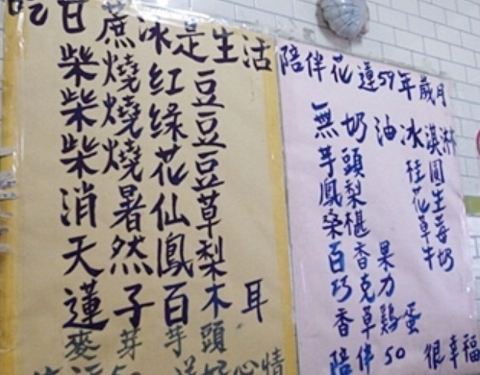 吃甘蔗冰是生活
柴燒紅豆
柴燒綠豆
柴燒花豆
消暑仙草
天然鳳梨
蓮子百木耳
麥芽芋頭
50 心情
陪伴花蓮59年歲月
無奶油冰淇淋
芋頭 桂圓
鳳梨 花生
桑椹 草莓
百香果 牛奶
巧克力
香草雞蛋
陪伴50 很幸福